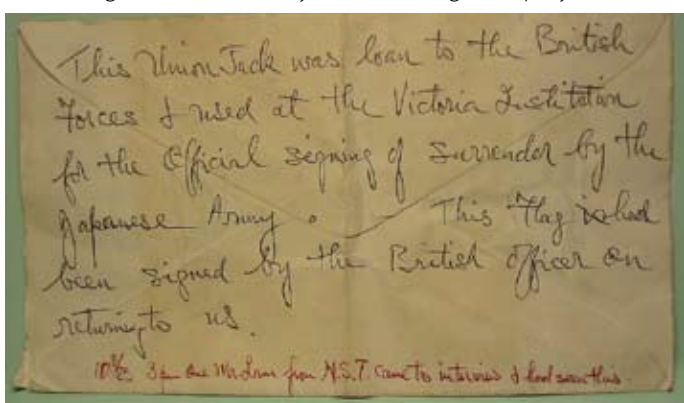 This Union Jack was loan to the British
Forces & used at the Victoria Institution
for the Official signing of Surrender by the
Japanese Army. — This Flag had
been signed by the British officer on
returning to us.
One Mr from N.S.T. came to interview & had seen this.